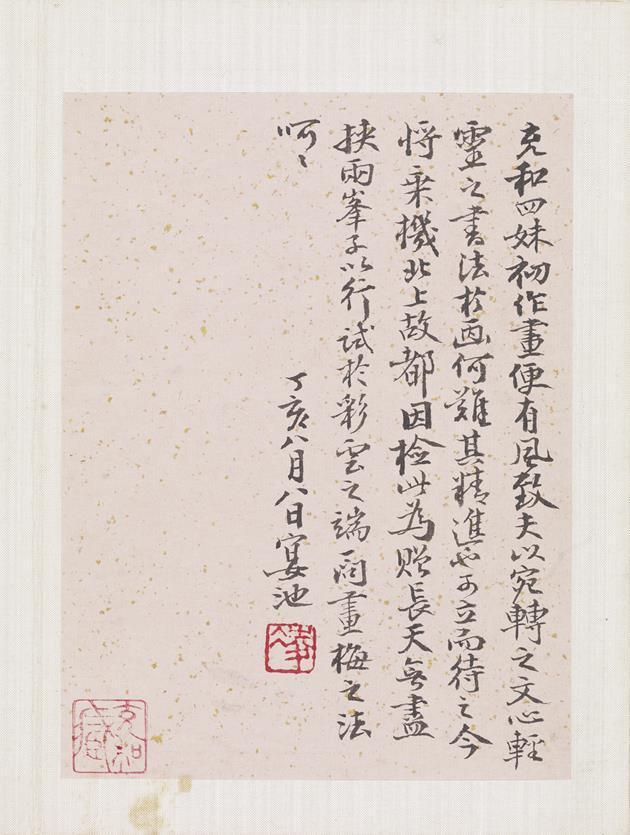 充和四妹初作畫便有風致夫以宛轉之文心輕
靈之書法於画何難其精進必可立而待之今
將乘機北上故都因檢此為贈長天無盡
挾雨峯子以行試於彩雲之端商畫梅之法
呵〻
丁亥八月八日宴池
充和